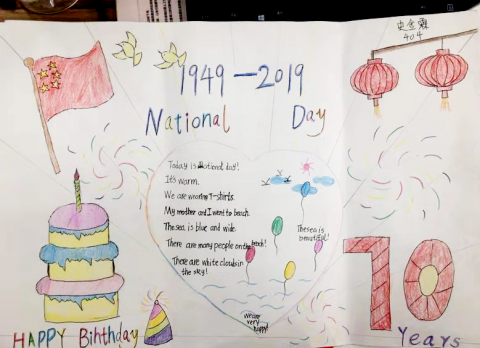 史金霖
404
1949-2019
National Day
Today is National day!
It's warm.
We are wearing T-shirts.
My mother and I went to beach.
The sea is blue and wide.
There are many people on the beach!
There are white clouds in
the sky!
The sea is
beautiful!
we are
very
happy!
70
HAPPY Bihthday
Years